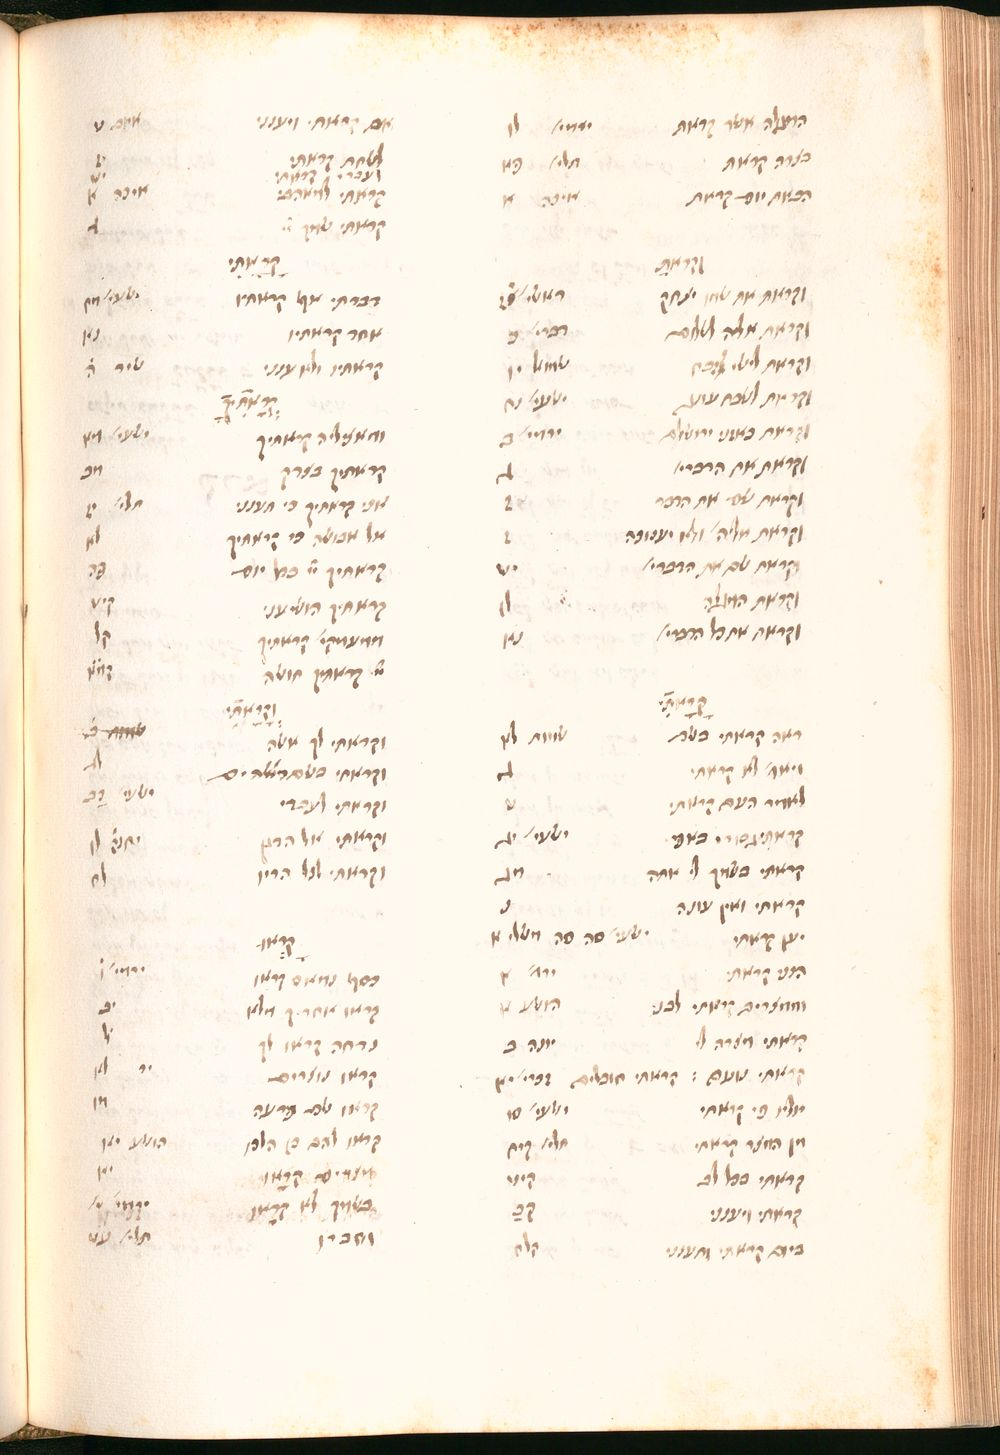 המגלה אשר קראת ירמי׳ לו
בצרה קראת תלי׳ פא
הבאת יום קראת איכה א
וקראת
וקראת את שמו יצחק ראשי׳
וקראת אליה לשלום דברי׳ כ
וקראת לישי בזבח שמואל יו
וקראת לשבת עונג ישעי׳ נח
וקראת באזני ירושלם ירמי׳ ב
וקראת את הדברי׳ ג
וקראת שם את הדבר ז
וקראת אליה׳ ולא יענוכה ז
וקראת שם את הדברי׳ יט
וקראת המגלה לו
וקראת את כל הדברי׳ נא
קראתי
ראה קראתי בשם שמות לא
ויאמ׳ לא קראתי ג
לאמר העם קראתי ט
קראתי גבורי באפי ישעי׳ יג
קראתי בשמך לי אתה מג
קראתי ואין עונה נ
יען קראתי ישעי׳ סה סה משלי א
הנני קראתי ירמ׳ א
וממצרים קראתי לבני הושע יא
קראתי מצרה לי יונה ב
קראתי נועם : קראתי חובלים זכרי׳ יא
אליו פי קראתי תלי׳ סו
מן המצר קראתי תלי׳ קיח
קראתי בכל לב קיט
קראתי ויענני קכ
ביום קראתי ותענני קלח
אם קראתי ויענני איוב ט
לשחת קראתי יז
לעבדי קראתי יט
קראתי למאהבי איכה א
קראתי שמך יי׳ ג
קראתי
דברתי אף קראתיו ישעי׳ מח
אחד קראתיו נא
קראתיו ולא ענני שיר ה
קראתיך
ומאציליה קראתיך ישעי׳ מא
קראתיך בצדק מב
אני קראתיך כי תענני תלי׳ יז
אל אבושה כי קראתיך לא
קראתיך יי׳ בכל יום פח
קראתיך הושיעני קיט
ממעמקי׳ קראתיך קל
יי׳ קראתיך חושה קמא
וקראתי
וקראתי לך אשה שמות ב
וקראתי בשם
וקראתי לעבדי ישעי׳ כב
וקראתי אל הדגן יחזק׳ לו
וקראתי לכל הרי לח
קראו
כסף נמאס קראו ירמי׳ ו
קראו אחריך מלא יב
נדחה קראו לך ל
קראו נוצרים יר לא
קראו שם פרעה מו
קראו להם כן הלכו הושע יא
מצרים קראו
בשמך לא קראו ירמי׳ י
תלי׳ עט